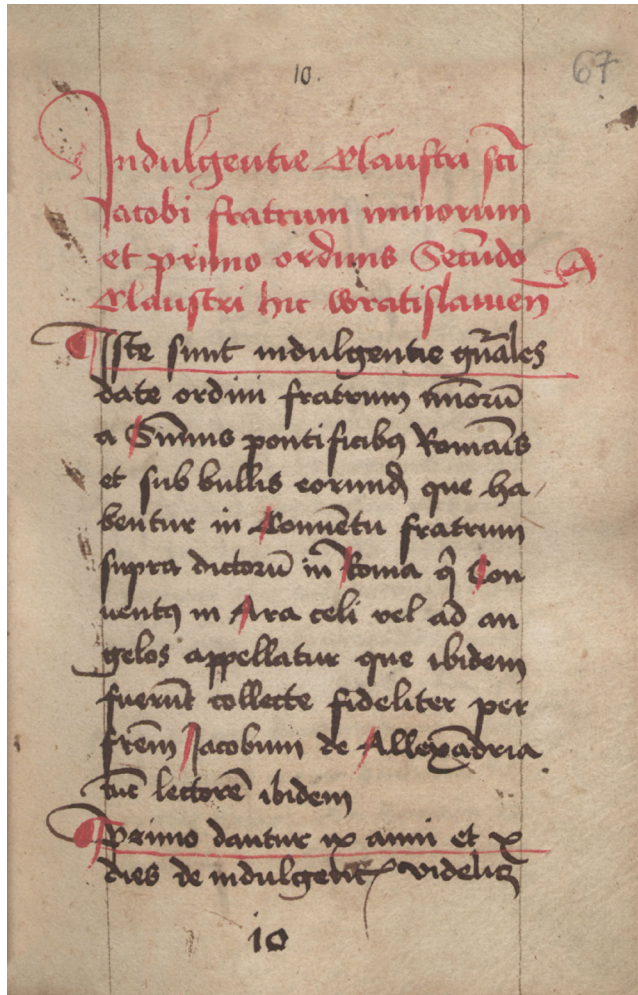 10.
67
Indulgentie Claustri scti
Jacobi fratrum minorum
et primo ordinis Secudo
Claustri hic wratislauien
Iste sunt indulgentie gn̄ales
date ordini fratrum mīorū
a Sūmis pontificibꝯ Romāis
et sub bullis eorundꝫ que ha
bentur in Conuētu fratrum
supra dictorū in Roma qͥ Con
uentꝯ in Ara celi vel ad an
gelos appellatur que ibidem
fuerūt collecte fideliter per
frēm Jacobum de Allexādria
tūc lectorē ibidem
Primo dantur ix anni et x
dies de indulgent videlicꝫ
10